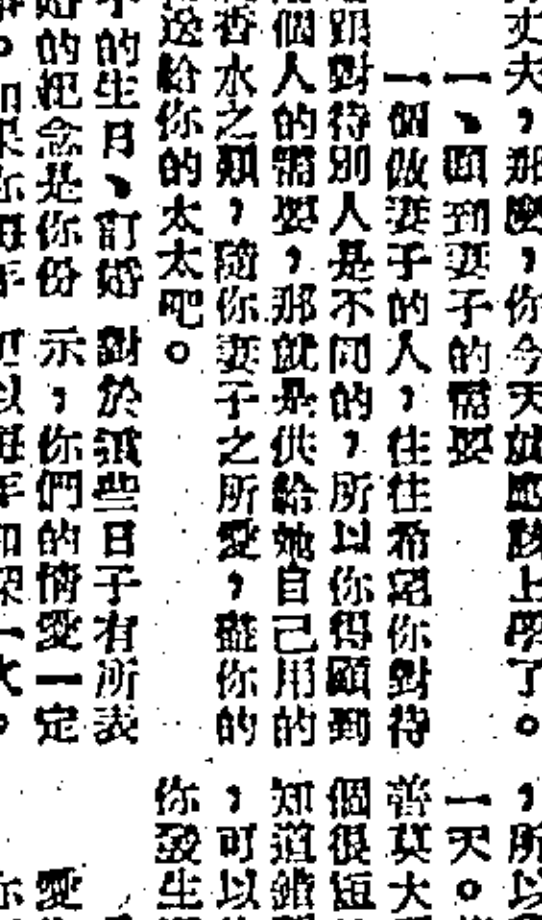 丈夫，那麼，你今天就應該上學了。
一、顧到妻子的需要
一個做妻子的人，往往希望你對待
跟對待別人是不同的，所以你得顧到
個人的需要，那就是供給她自己用的
香水之類，隨你妻子之所愛，儘你的
送給你的太太吧。
的生日、訂婚
的紀念是你份
對於這些日子有所表
示，你們的情愛一定
以每年和
一次。
，所以
一天。
善莫大
個很短
知道錯
，可以
你發生
愛